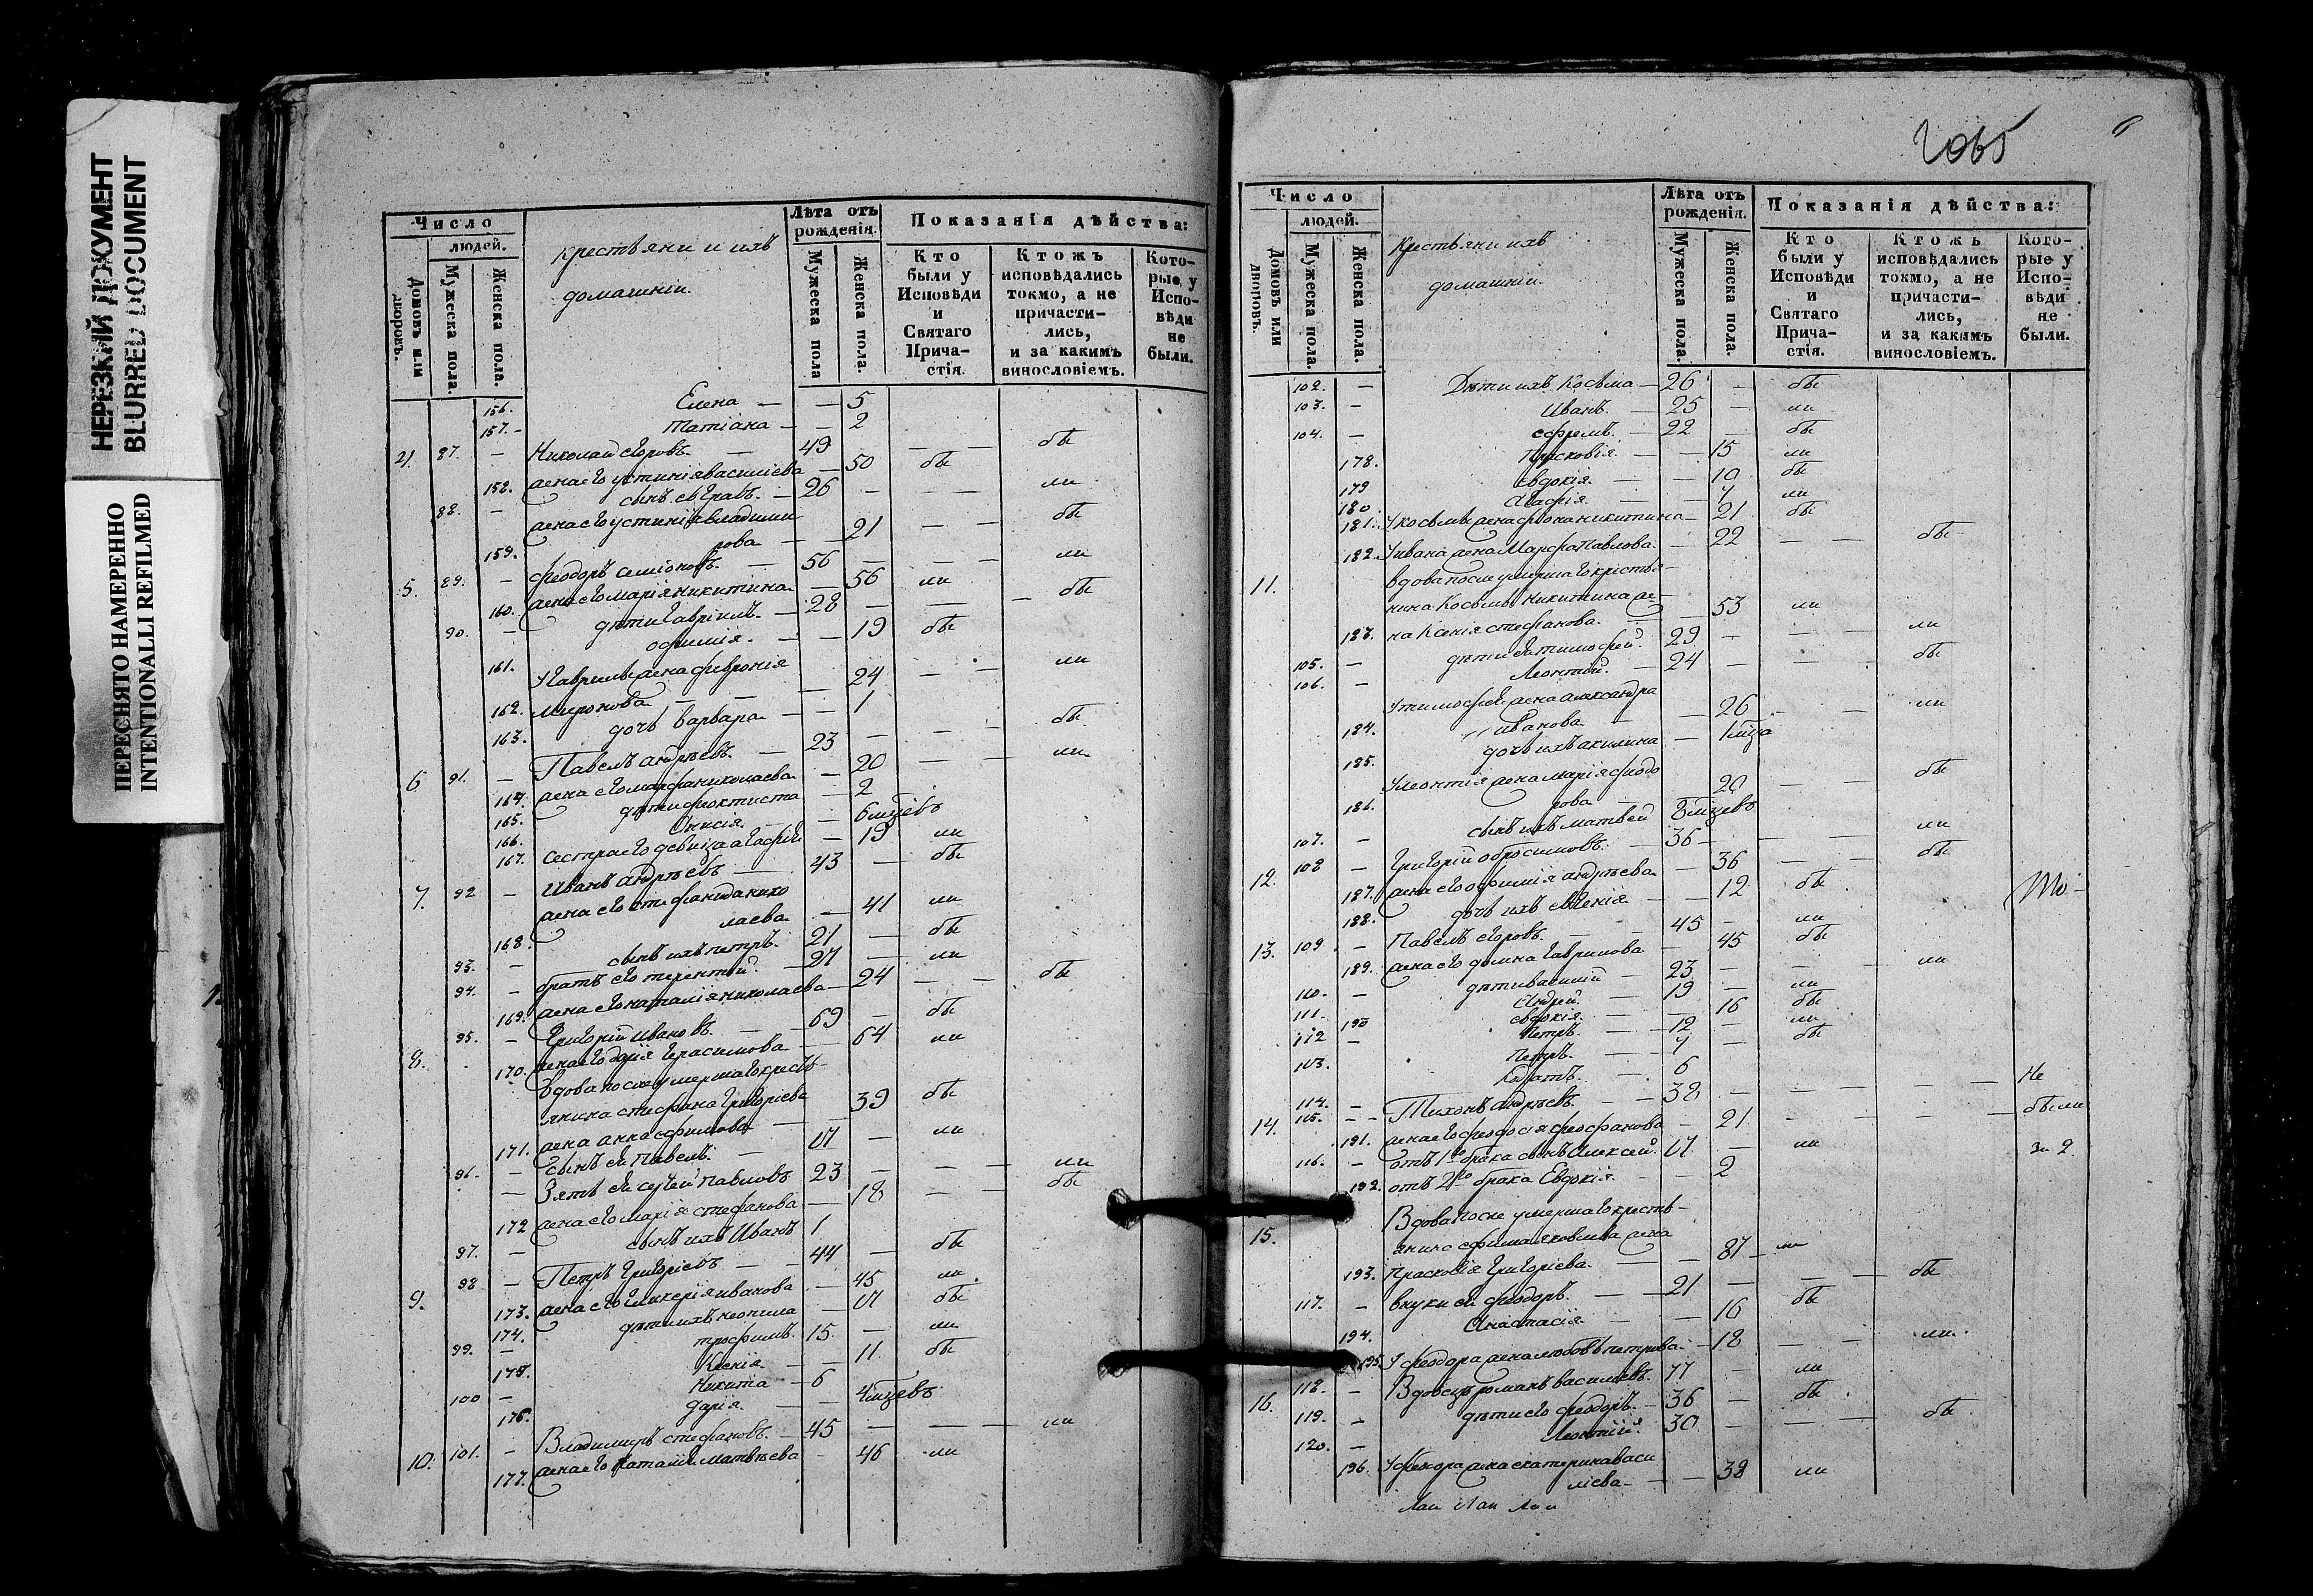 НЕРЕЗКИЙ ДОКУМЕНТ
BLURRED DOCUMENT
ПЕРЕСНЯТО НАМЕРЕННО
INTENTIONALLI REFILMED
Число
людей.
Домовъ или дворовъ.
Мужеска пола.
Женска пола.
крестьяни и ихъ
домашніи.
Лѣта отъ
рожденія.
Мужеска пола
Женска пола.
Показанія дѣйства:
Кто
были у
Исповѣди
и
Святаго
Прича-
стія.
Ктожъ
исповѣдались
токмо, а не
причасти-
лись,
и за какимъ
винословіемъ.
Кото-
рые у
Испо-
вѣди
не
были.
156. Елена — — 5
157. — Татіана — — 2
4. 87. — Николай Егоровъ — 49 — — бы
158. жена его устинія василіева — 50 бы
88. — сынъ евграфъ — 26 — — — ли
жена его устинія владими
159. рова — — 21 — — бы
5. 89. — феодоръ семіоновъ. — 56 — — — ли
160. жена его марія никитина — 56 ли
90. — дѣти гавріилъ. — 28 — — — бы
161. офимія. — — 19 бы
У гавріила жена февронія
162. миронова — — — 24 — — ли
163. дочь варвара — — 1
6 91. — Павелъ андрѣевъ. — 23 — — — бы
164. жена его марфа николаева — 20 — — ли
165. дѣти феоктиста — 2
166. Анисія. — — 6 мцевъ
167. сестра его девица агафія — 19 ли
7. 92 — Иванъ андрѣевъ — 43 — бы
жена его стефанида нико
168. лаева — — 41 ли
93. — сынъ ихъ петръ. 21 — бы
94. — братъ его терентій. — 27 — ли
169. жена его наталія николаева — 24 — — бы
8. 95. — Григорій ивановъ. — — 69 — бы
170. жена его дарія герасимова — 64 ли
вдова после умершаго кресть-
янина стефана григоріева
171. жена анна ефимова — — 39 бы
96. — сынъ ея Павелъ. — 17 — ли
— Зять ея сергей павловъ 23 — — — ли
172 жена его марія стефанова — 18 — — бы
97. — сынъ ихъ Иванъ 1
9. 98 — Петръ григоріевъ — — 44 — бы
173. жена его гликерія иванова — 45 ли
174. дѣти ихъ неонила — 17 бы
99. — трофимъ. 15. — ли
175. Ксенія. — — 11 бы
100 — Никита — 6
176. дарія. — — 4 мцевъ
10. 101. — Владимиръ стефановъ. — 45 — — — ли
177. жена его наталія матвѣева — 46 ли
2065
6
Число
людей.
Домовъ или дворовъ.
Мужеска пола.
Женска пола.
Крестьяни ихъ
домашніи.
Лѣта отъ
рожденія.
Мужеска пола.
Женска пола.
Показанія дѣйства:
Кто
были у
Исповѣди
и
Святаго
Прича-
стія.
Ктожъ
исповѣдались
токмо, а не
причасти-
лись,
и за какимъ
винословіемъ.
Кото-
рые у
Испо-
вѣди
не
были.
102. — Дѣти ихъ Косьма — 26 — бы
103. — Иванъ. — 25 — ли
104. — ефремъ. — 22 — бы
178. Прасковія. — — 15 ли
179 евдокія. — — 10 бы
180 Агафія. — — 7 ли
181. У косьмы жена фіона никитина — 21 бы
182. У ивана жена Марфа Павлова. — 22 — — бы
11. вдова после умершаго крестья-
нина Косьмы никитина же-
183. на Ксенія стефанова. — — 53 ли
105. — дѣти ея тимофей. 29 — — — ли
106. — Леонтій. — 24 — — бы
У тимофея жена александра
184. иванова — — 26 — — ли
185. дочь ихъ акилина — 1 мца
У леонтія жена марія феодо
186. рова — 20 — — бы
107. — сынъ ихъ матвей 5 мцевъ
12. 108 — Григорій обросимовъ. — 36 — — — ли
187. жена его офимія андрѣева — 36 — — бы
188. дочь ихъ евгенія. — — 12 бы
13. 109. — Павелъ егоровъ. — — 45 — ли
189. жена его домна гаврилова — 45 бы
110. — дѣти василій — 23 — — — ли
111. Андрей. — 19 — ли
190 евдокія. — — 16 бы
112 — Петръ. — 12 — ли
113. Петръ. — 7 — бы
114. — Кодратъ. — 6
14. 115. — Тихонъ андрѣевъ. — — 38 — — — — — Не
191. жена его феодосія феофанова — 21 — — — — были
116. — отъ 1го брака сынъ Алексей. 17 — ли за 2.
192. отъ 2го брака Евдокія. — — 2
15. Вдова после умершаго кресть-
янина ефима яковлева жена
193. Прасковія григоріева. — — 87 — ли
117. — внуки ея феодоръ. — — 21 — — — бы
194. Анастасія — — 16 бы
195. У феодора жена любовь петрова — 18 — — ли
16. 118. — Вдовецъ романъ васильевъ. 77 — ли
119. — дѣти его феодоръ. — 36 — бы
120. — Леонтій. 30 — — — бы
196. У феодора жена екатерина васи
ліева — — — 38 ли